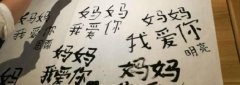 妈妈
我爱你
妈妈
我爱你
妈妈
我爱你
明亮
妈妈
我爱你
妈妈
我爱你